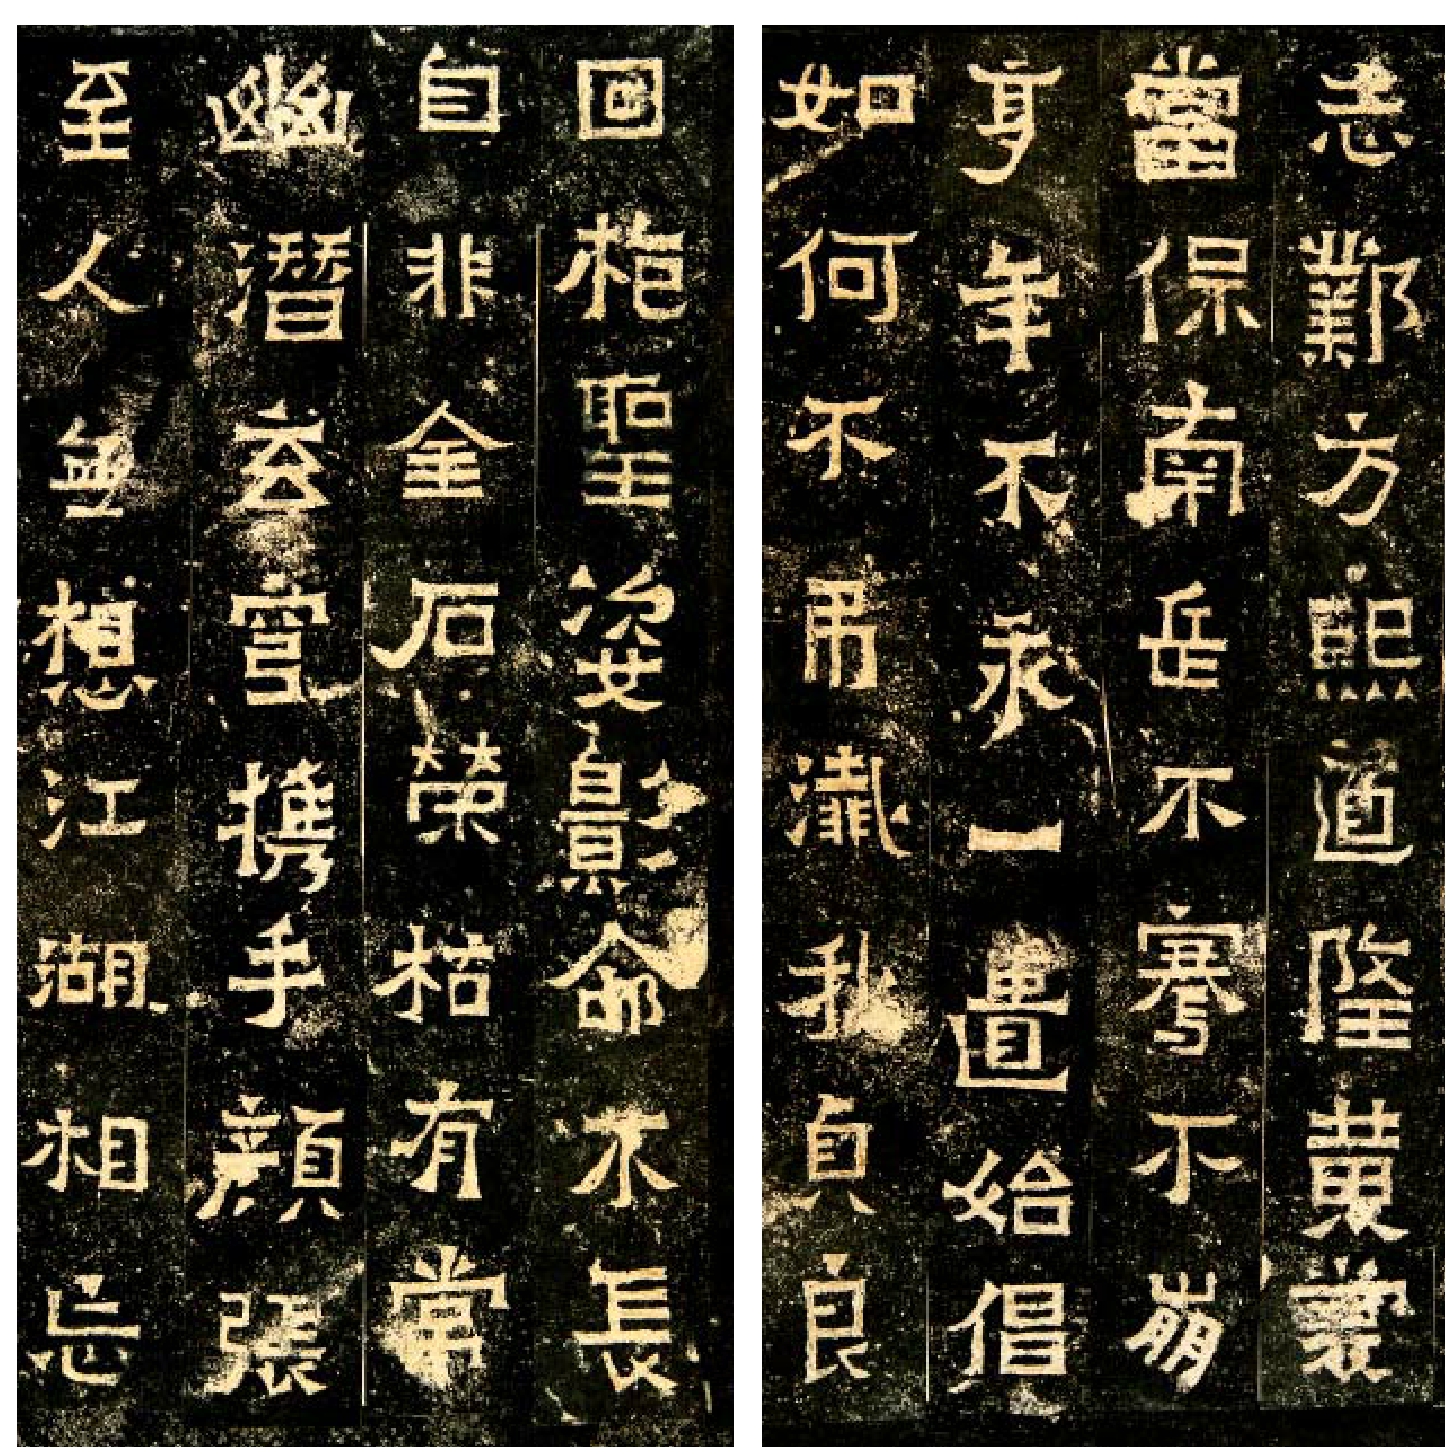 志鄴方熙道隆黄裳
當保南岳不騫不崩
享年不永一匱始倡
如何不弔殲我貞良
回枹聖姿影命不長
自非金石榮枯有常
幽潛玄穹携手顏張
至人無想江湖相忘